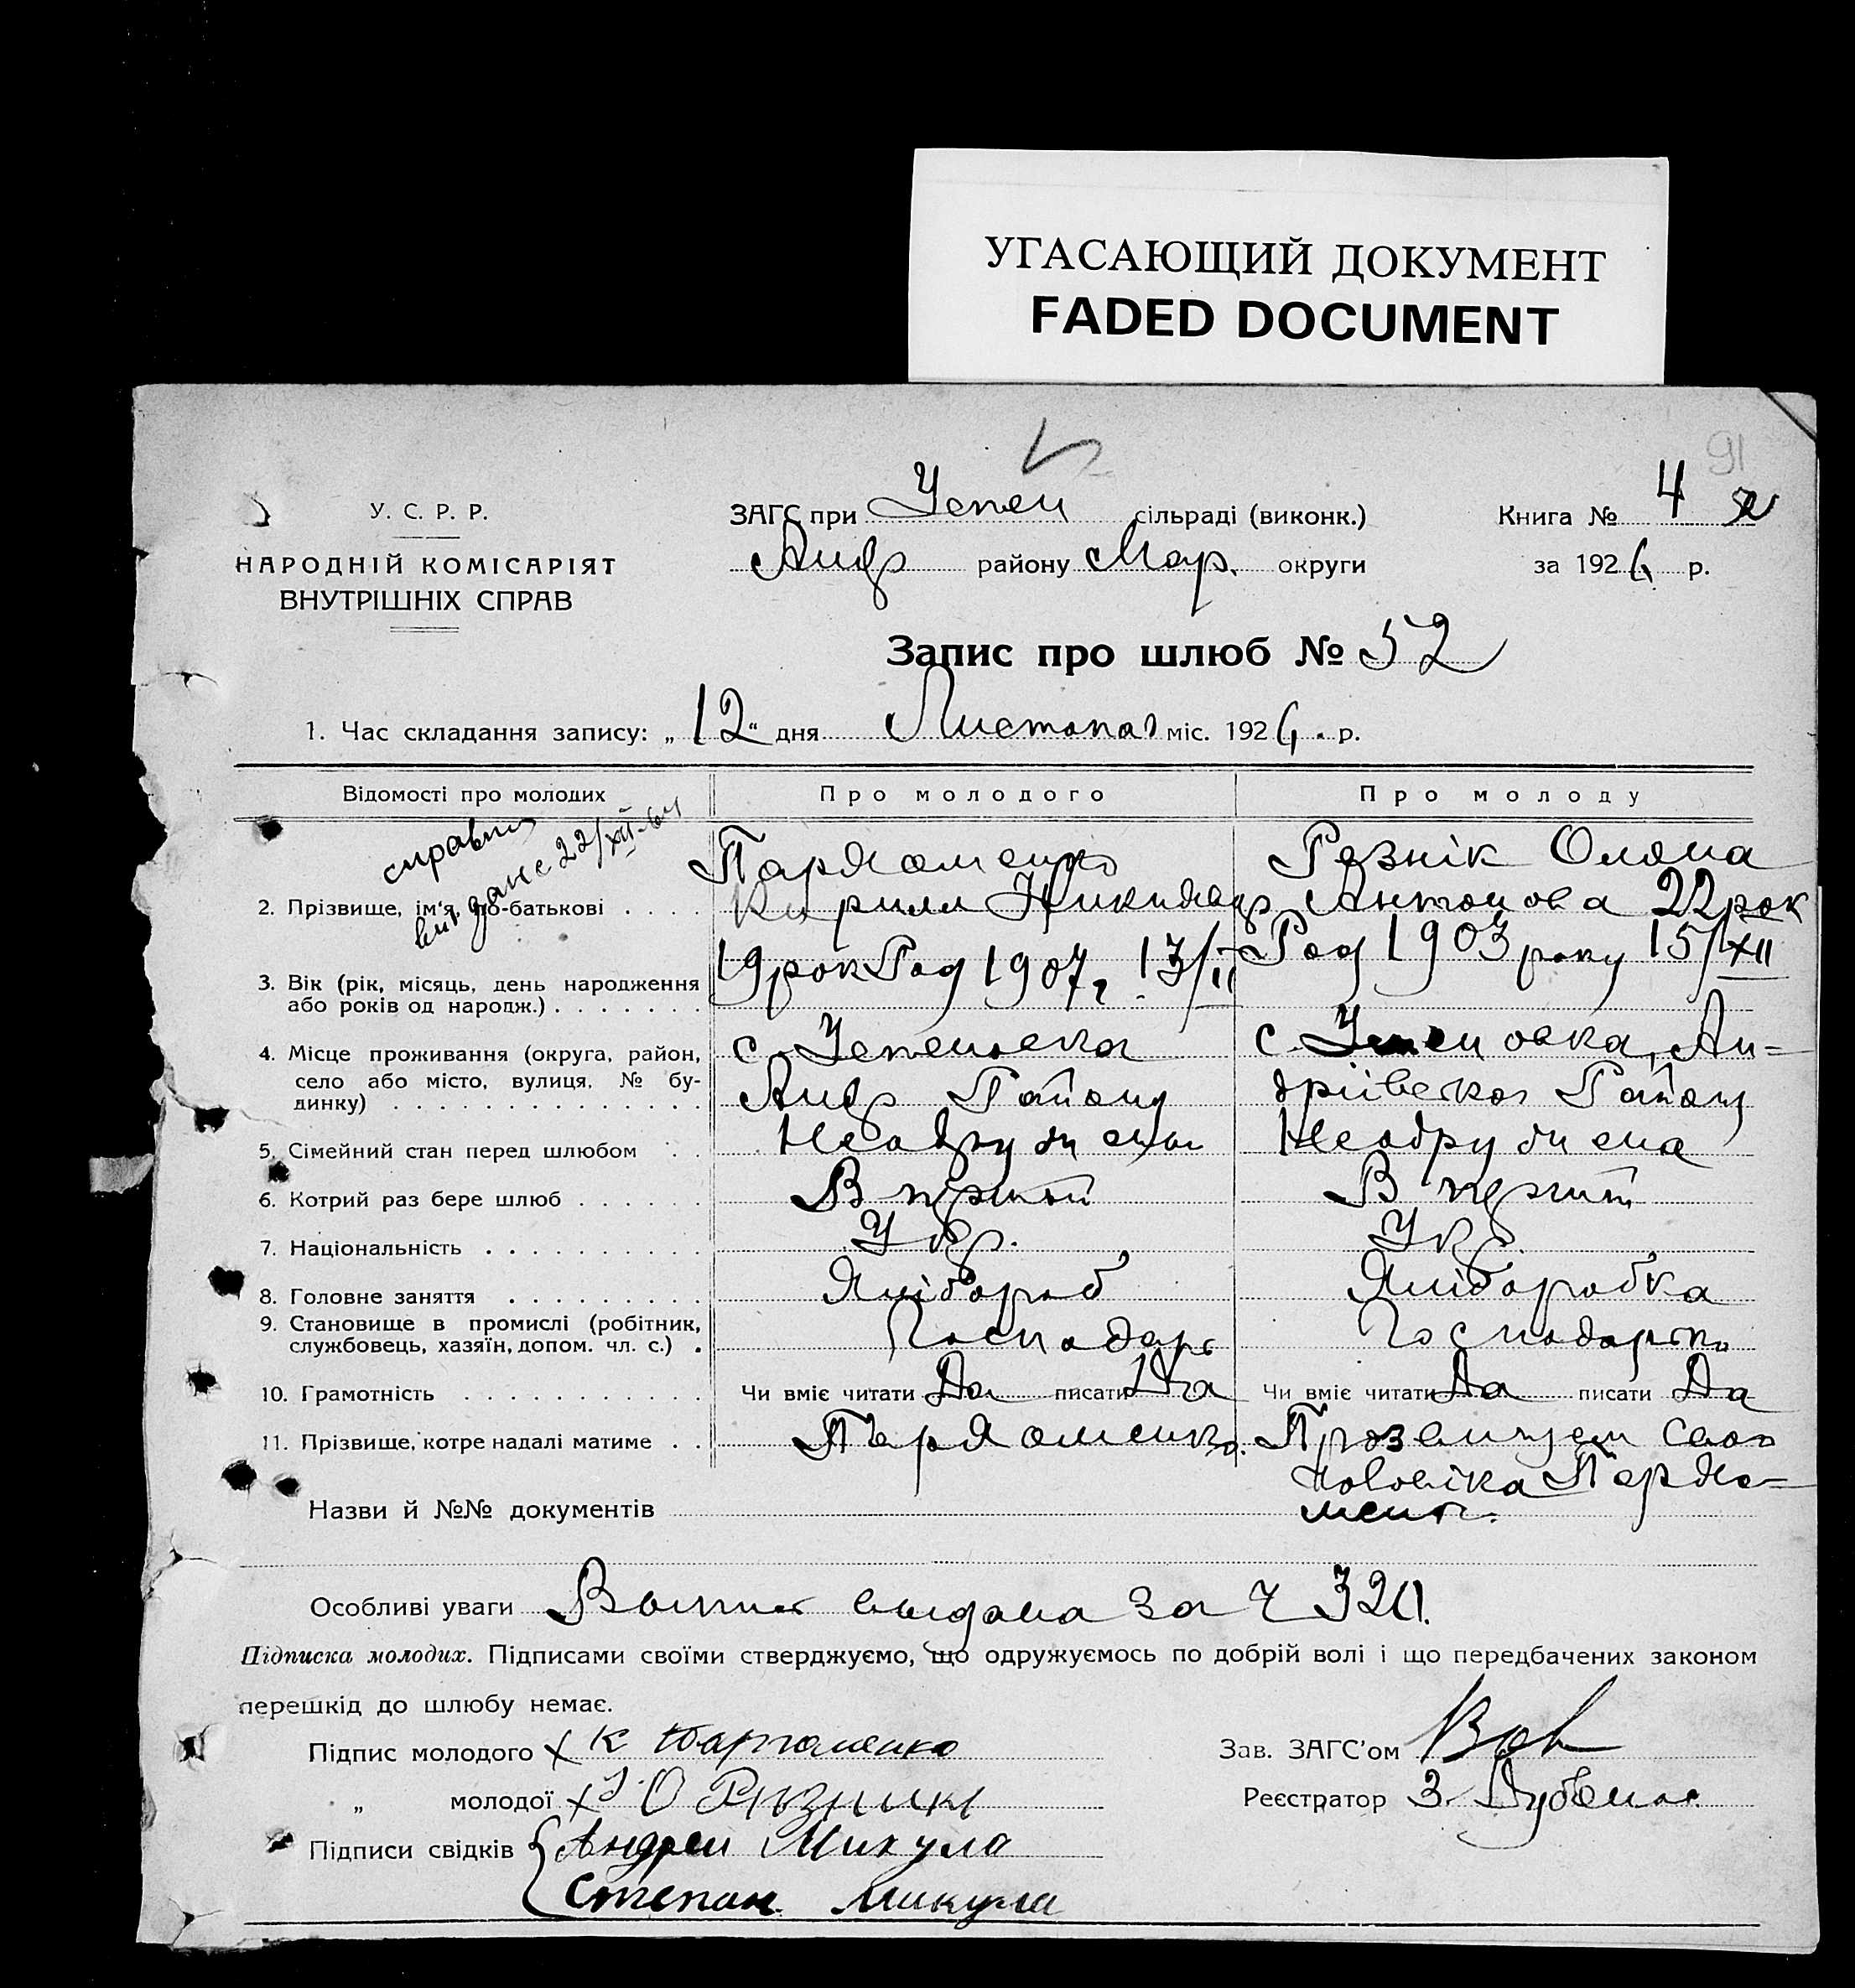 УГАСАЮЩИЙ ДОКУМЕНТ
FADED DOCUMENT
91
У. С. Р. Р.
НАРОДНІЙ КОМІСАРІЯТ
ВНУТРІШНІХ СПРАВ
ЗАГС при Успен сільраді (виконк.)
Андр району Мар. округи
Книга № 4
за 1926 р.
Запис про шлюб № 52
1. Час складання запису: „12“ дня Листопад міс. 1926. р.
Відомості про молодих
Про молодого
Про молоду
справка
видане 22/XII-64
2. Прізвище, ім'я, по-батькові
Пархоменко
Кирилл
Резнік Олена
Антонова 22 рок
3. Вік (рік, місяць, день народження
або років од народж.)
19 рок Род 1907 г. 13/II
Род 1903 року 15/XII
4. Місце проживання (округа, район,
село або місто, вулиця, № бу-
динку)
с. Успеновка
Андр Району
с. Успеновка, Ан-
дріївског Району
5. Сімейний стан перед шлюбом
Неодружена
6. Котрий раз бере шлюб
В перший
В перший
7. Національність
Укр.
Укр.
8. Головне заняття
Хлібороб
Хлiборобка
9. Становище в промислі (робітник,
службовець, хазяїн, допом. чл. с.)
Господарь
Господарька
10. Грамотність
Чи вміє читати Да писати Да
Чи вміє читати Да писати Да
11. Прізвище, котре надалі матиме
Пархоменко.
Прозвищем свого
чоловіка Пархо-
менко.
Назви й №№ документів
Особливі уваги Выпис выдана за ч 320.
Підписка молодих. Підписами своїми стверджуємо, що одружуємось по добрій волі і що передбачених законом
перешкід до шлюбу немає.
Підпис молодого х К Пархоменко
„ молодої х О Резник
Зав. ЗАГС'ом
Реєстратор З.
Підписи свідків Андреи Микула
Степан Микула